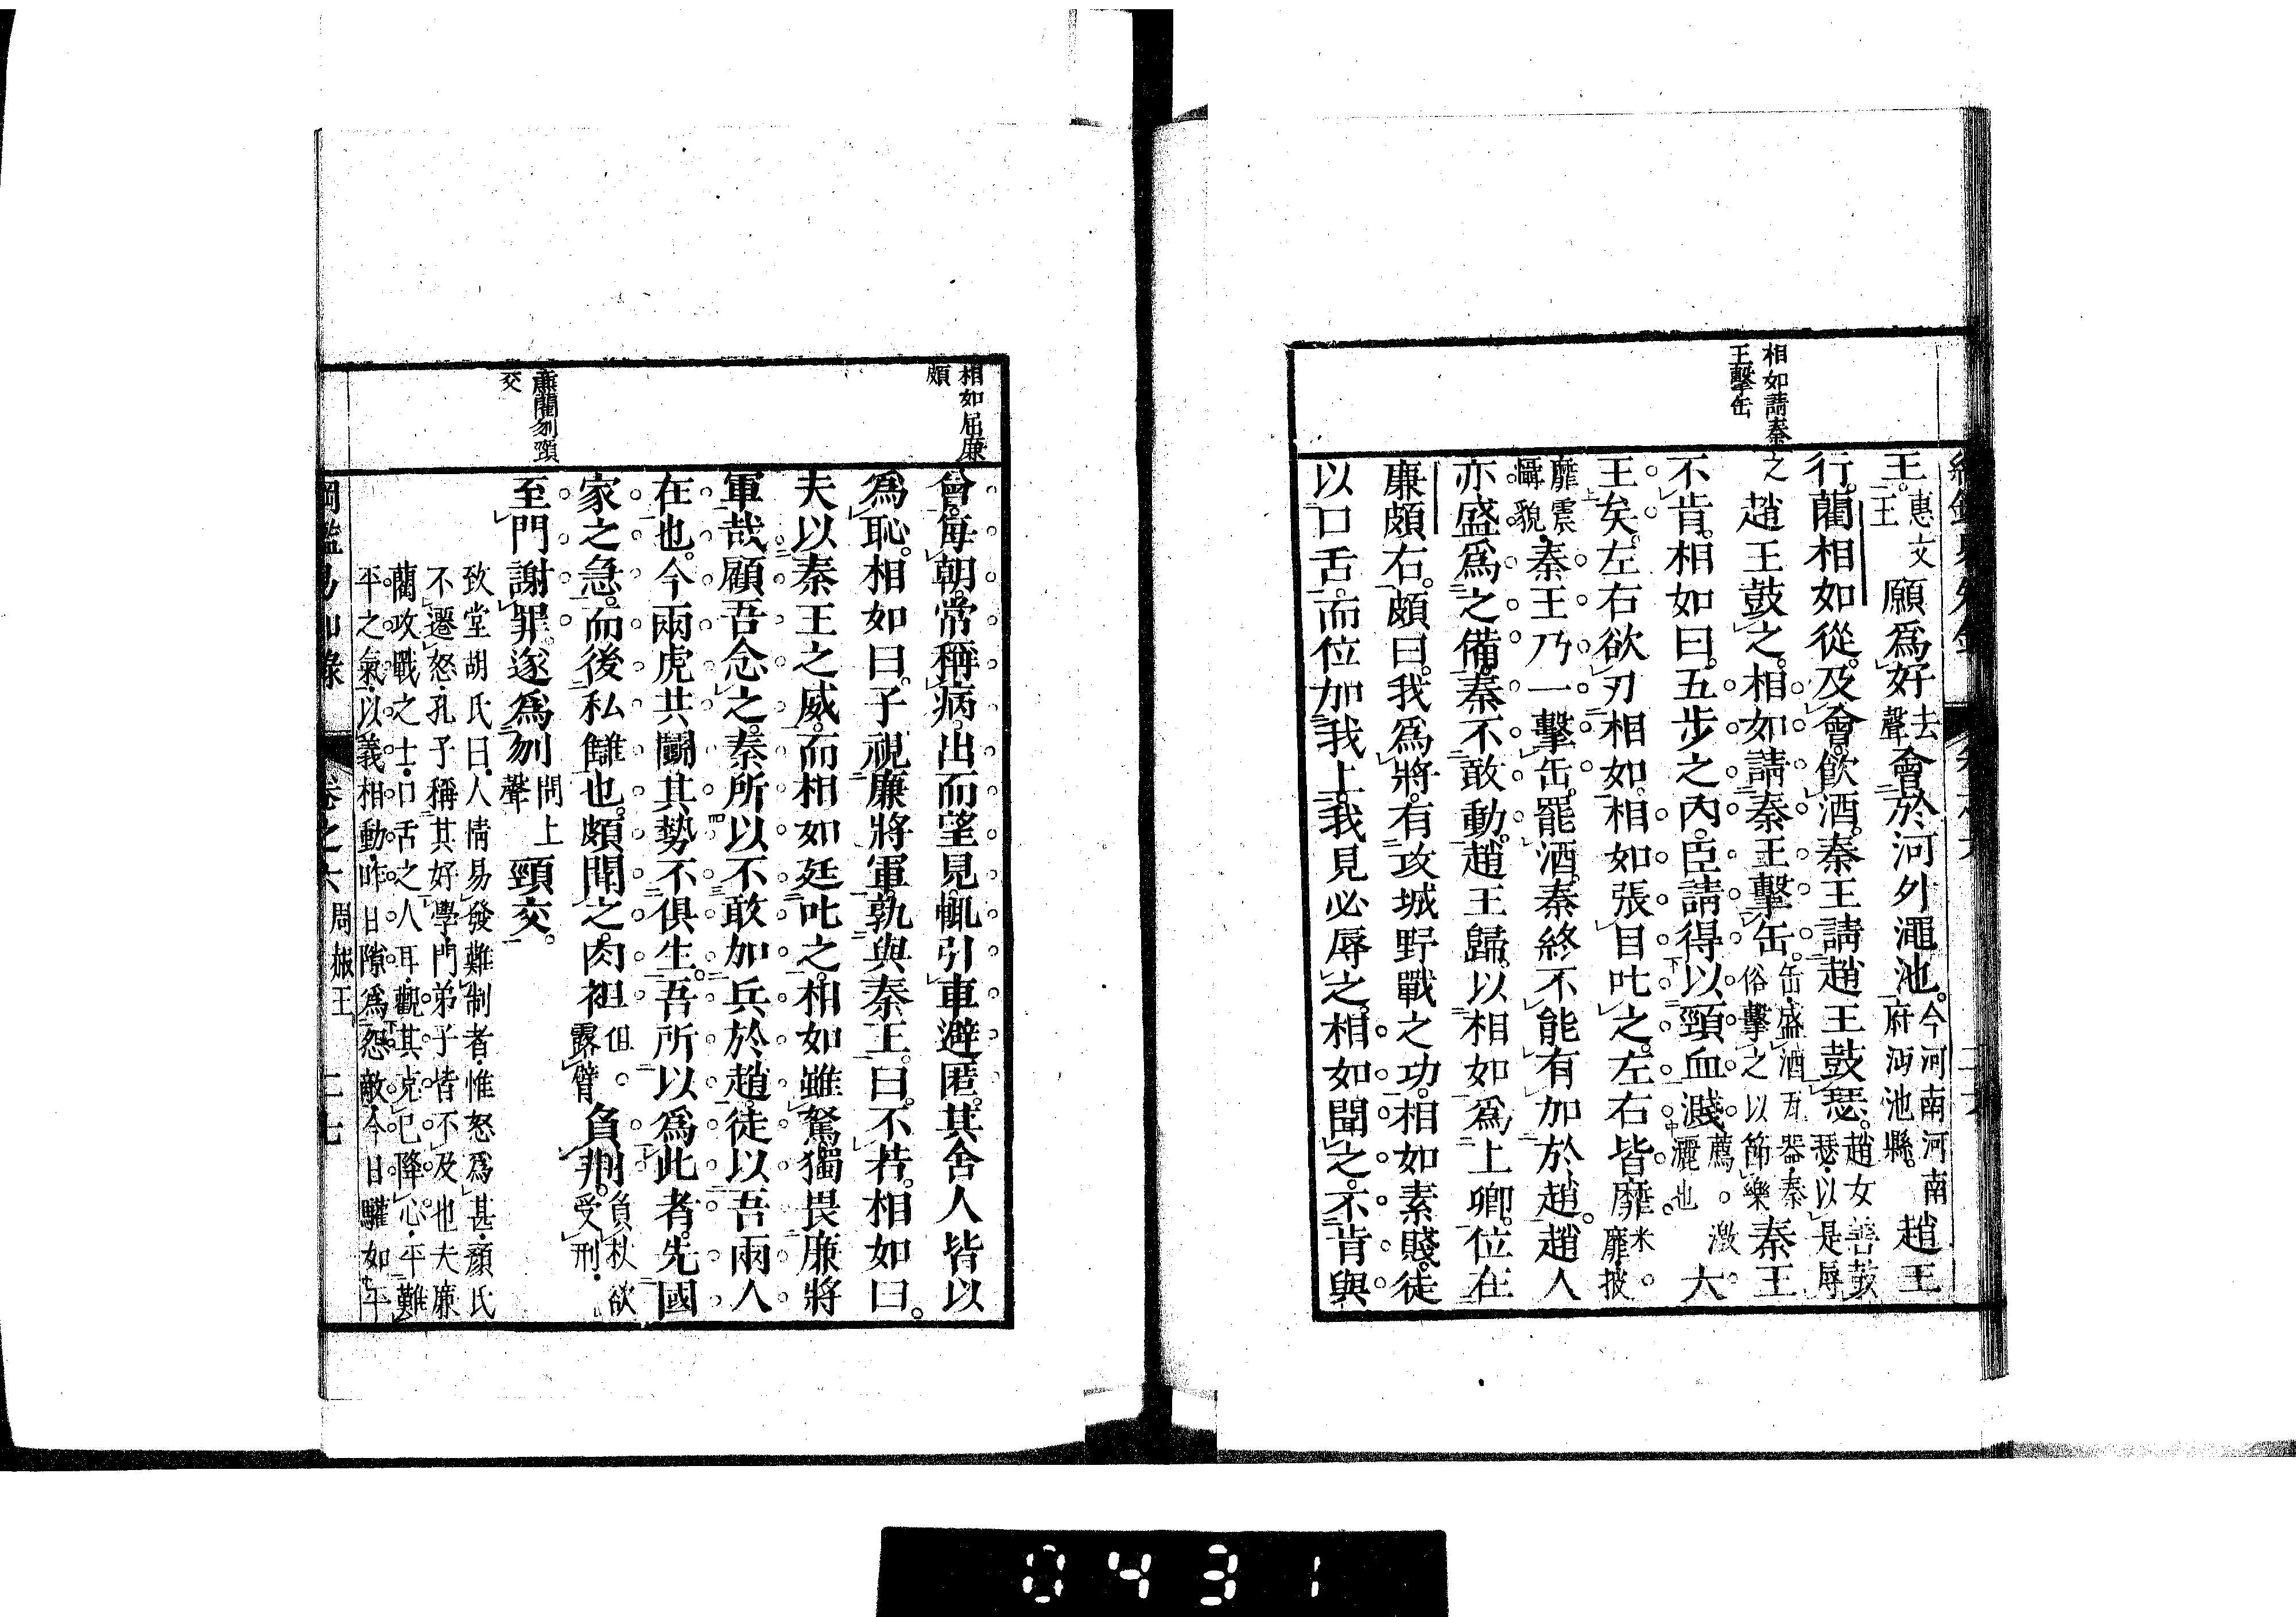 相如請秦
王擊缶
王。惠文王願爲好去聲會於河外澠池。今河南河南府沔池縣。趙王
行。藺相如從。及會。飮酒。秦王請趙王鼓瑟。趙女善鼓瑟以是辱
之趙王鼓之。相如請秦王擊缶。缶盛酒瓦器秦俗擊之以節樂秦王
不肯。相如曰。五步之內。臣請得以頸血濺薦。灑也激大
王矣。左右欲刃相如。相如張目叱之。左右皆靡。米。靡披
靡震懾貌秦王乃一擊缶。罷酒。秦終不能有加於趙。趙人
亦盛爲之備。秦不敢動。趙王歸。以相如爲上卿。位在
廉頗右。頗曰。我爲將。有攻城野戰之功。相如素賤。徒
以口舌。而位加我上。我見必辱之。相如聞之。不肯與
相如屈廉
頗
會。每朝。常稱病。出而望見。輒引車避匿。其舍人皆以
爲恥。相如曰。子視廉將軍。孰與秦王。曰。不若。相如曰。
夫以秦王之威。而相如廷叱之。相如雖駑。獨畏廉將
軍哉。顧吾念之。秦所以不敢加兵於趙。徒以吾兩人
在也。今兩虎共鬭。其勢不俱生。吾所以爲此者。先國
家之急。而後私讎也。頗聞之。肉袒但。露臂負荆。負杖欲受刑
廉藺刎頸
交
至門謝罪。遂爲刎問上聲頸交。
致堂胡氏曰。人情易發難制者。惟怒爲甚。顏氏
不遷怒。孔子稱其好學。門弟子皆不及也。夫廉
藺攻戰之士。口舌之人耳。觀其克己降心。平難
平之氣。以義相動。昨日隙爲怨敵。今日驩如
綱鑑易知錄 卷之六 周赧王 二七
0431